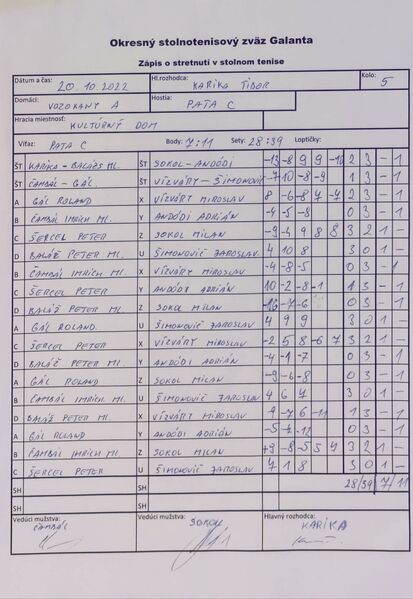 Okresný stolnotenisový zväz Galanta
Zápis o stretnutí v stolnom tenise
Dátum a čas: 20.10.2022 Hl.rozhodca: KARIKA TIBOR Kolo: 5
Domáci: VOZOKANY A Hostia: PATA C
Hracia miestnosť: KULTÚRNY DOM
Víťaz: PATA C Body: 7:11 Sety: 28:39 Loptičky:
ŠT KARIKA - BALÁŽS ML. ŠT SOKOL - ANDÓDI -13 -8 9 9 -10 2 3 - 1
ŠT ČAMBÁL - GÁL ŠT VIZVÁRY - ŠIMONOVIČ -7 10 -8 -9 1 3 - 1
A GÁL ROLAND X VIZVÁRY MIROSLAV 8 -6 -8 7 -7 2 3 - 1
B ČAMBÁL IMRICH ML. Y ANDÓDI ADRIÁN -4 -5 -8 0 3 - 1
C ŠERCEL PETER Z SOKOL MILAN -9 -4 9 8 8 3 2 1 -
D BALÁŽ PETER ML. U ŠIMONOVIČ JAROSLAV 4 10 8 3 0 1 -
B ČAMBÁL IMRICH ML. X VIZVÁRY MIROSLAV -4 -8 -5 0 3 - 1
C ŠERCEL PETER Y ANDÓDI ADRIÁN 10 -2 -8 -1 1 3 - 1
D BALÁŽ PETER ML. Z SOKOL MILAN -7 -6 0 3 - 1
A GÁL ROLAND U ŠIMONOVIČ JAROSLAV 4 9 9 3 0 1 -
C ŠERCEL PETER X VIZVÁRY MIROSLAV -2 5 8 -6 7 3 2 1 -
D BALÁŽ PETER ML. Y ANDÓDI ADRIÁN -4 -1 -7 0 3 - 1
A GÁL ROLAND Z SOKOL MILAN -9 -6 -8 0 3 - 1
B ČAMBÁL IMRICH ML. U ŠIMONOVIČ JAROSLAV 4 6 7 3 0 1 -
D BALÁŽ PETER ML. X VIZVÁRY MIROSLAV -9 -7 6 -11 1 3 - 1
A GÁL ROLAND Y ANDÓDI ADRIÁN -5 -2 -12 0 3 - 1
B ČAMBÁL IMRICH ML. Z SOKOL MILAN -8 -5 5 4 3 2 1 -
C ŠERCEL PETER U ŠIMONOVIČ JAROSLAV 7 1 8 3 0 1 -
SH SH 28/39 7/11
SH SH
Vedúci mužstva: Vedúci mužstva: Hlavný rozhodca:
ČAMBÁL SOKOL KARIKA